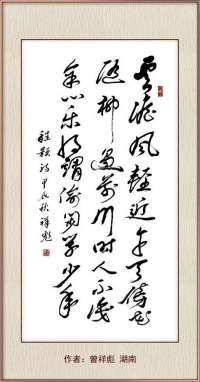 雲淡風輕近午天傍花
随柳過前川时人不識
余心乐将謂偷閑学少年
程颢诗甲辰秋祥彪
作者：曾祥彪 湖南